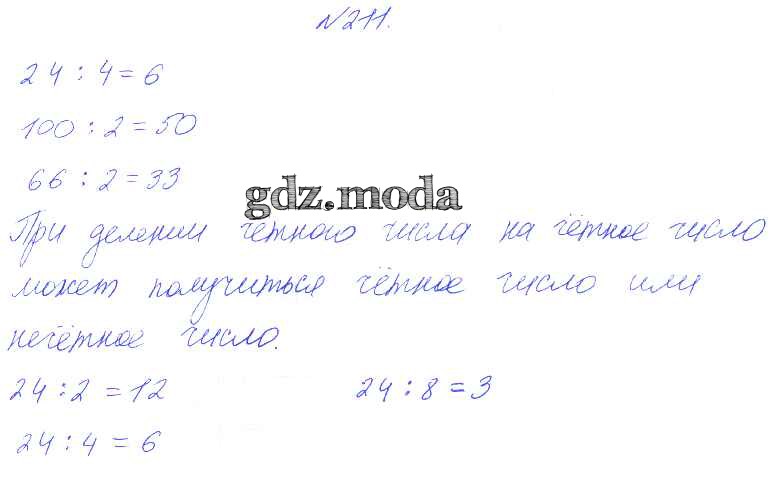 №211.
24 : 4 = 6
100 : 2 = 50
66 : 2 = 33
gdz.moda
При делении чётного числа на чётное число
может получиться чётное число или
нечётное число.
24 : 2 = 12 24 : 8 = 3
24 : 4 = 6